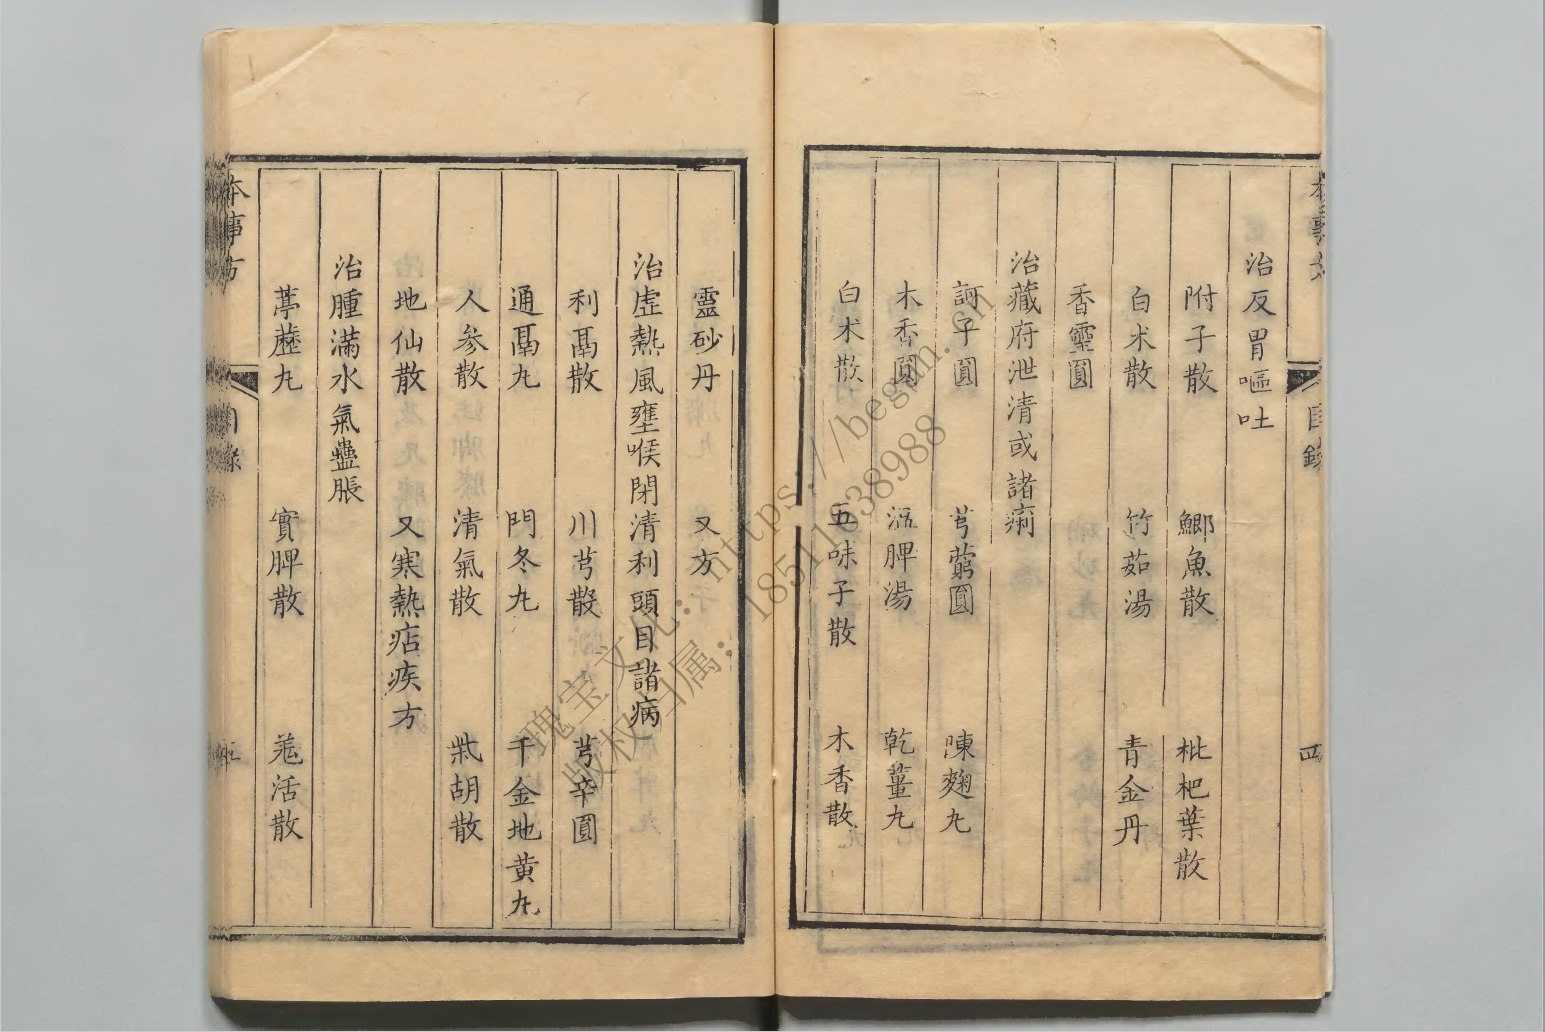 本事方
目錄
四
治反胃嘔吐
附子散 鯽魚散 枇杷葉散
白朮散 竹茹湯 青金丹
香靈圓
治藏府泄清或諸痢
訶子圓 芎藭圓 陳麴九
木香圓 溫脾湯 乾薑九
白朮散 五味子散 木香散
靈砂丹 又方
治虛熱風壅喉閉清利頭目諸病
利鬲散 川芎散 芎辛圓
通鬲九 門冬九 千金地黄九
人參散 清氣散 柴胡散
地仙散 又寒熱痁疾方
治腫滿水氣蠱脹
葶藶九 實脾散 羌活散
本事方
目錄
瑰宝文化:https://begm.cn
版权归属:18511038988